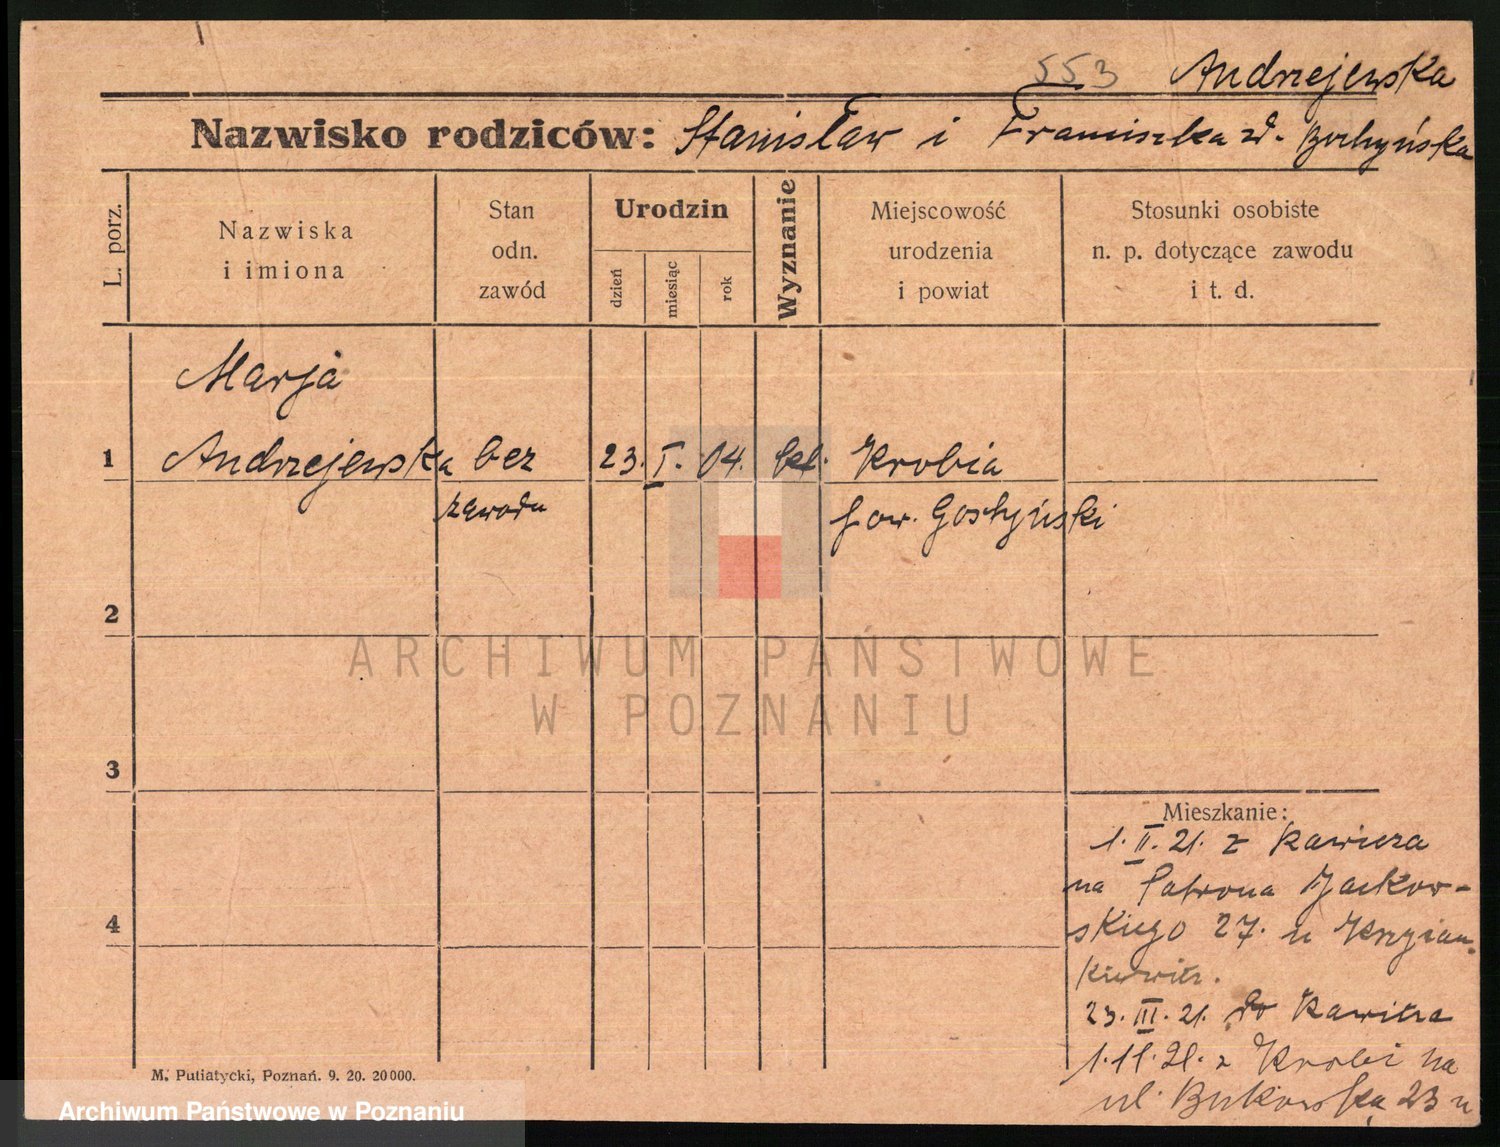 553 Andrzejewska
Nazwisko rodziców: Stanisław i Franciszka zd. Bochyńska
L. porz.
Nazwiska
i imiona
Stan
odn.
zawód
Urodzin
dzień
miesiąc
rok
Wyznanie
Miejscowość
urodzenia
i powiat
Stosunki osobiste
n. p. dotyczące zawodu
i t. d.
Marja
1 Andrzejewska bez 23. I. 04. kt. Krobia
zawodu pow. Gostyński
2
ARCHIWUM PAŃSTWOWE
W POZNANIU
3
Mieszkanie:
1. II. 21. z Rawicza
na Patrona Jackow-
4
skiego 27. u
23. III. 21. do Rawicza
1. 11. 21. z Krobi na
ul. Bukowska 23 u
M. Putiatycki, Poznań. 9. 20. 20000.
Archiwum Państwowe w Poznaniu